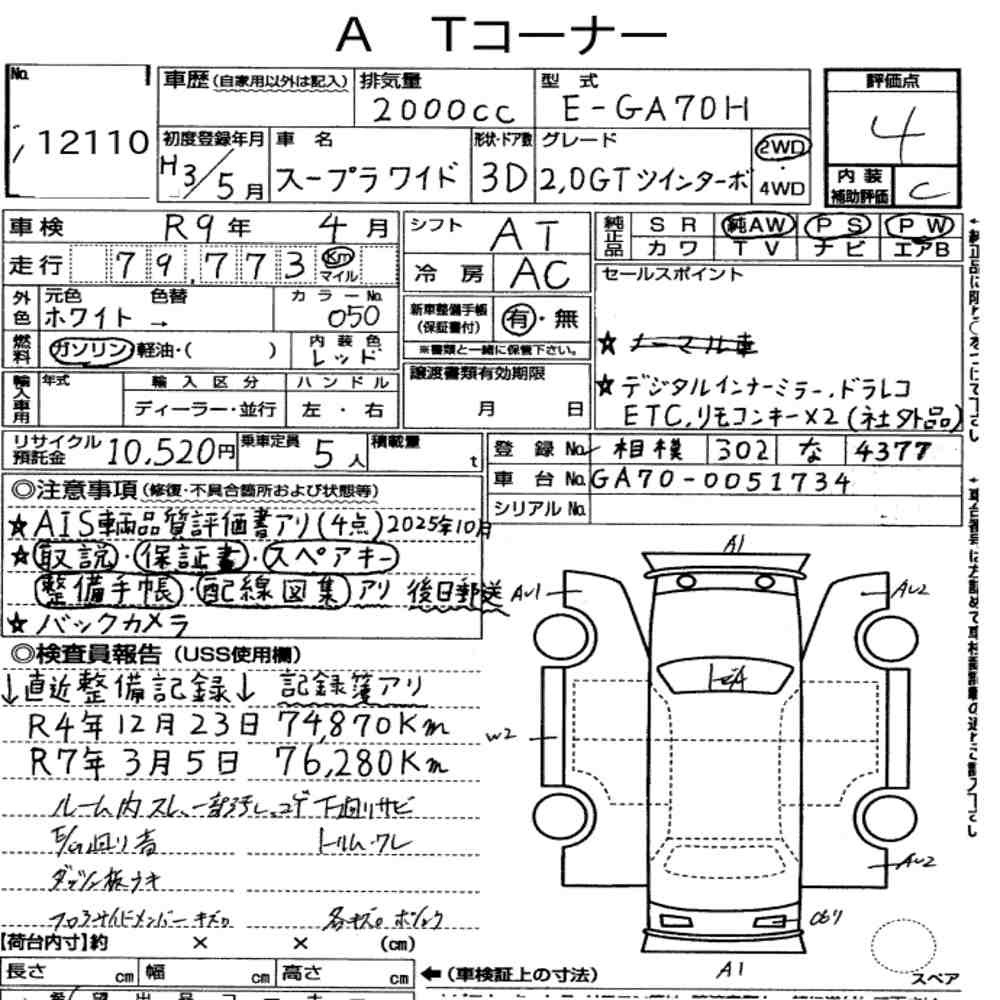 A Tコーナー
No. 12110
車歴(自家用以外は記入)
排気量 2000cc
型式 E-GA70H
評価点 4
初度登録年月 H3/5月
車名 スープラワイド
形状・ドア数 3D
グレード 2,0GTツインターボ
2WD
4WD
内装補助評価 C
車検 R9年 4月
シフト AT
純正品 SR 純AW PS PW
カワ TV ナビ エアB
走行 79,773 Km マイル
冷房 AC
セールスポイント
外色 元色 色替 カラーNo.
ホワイト → 050
新車整備手帳(保証書付) 有・無
※書類と一緒に保管下さい。
燃料 ガソリン 軽油・( )
内装色 レッド
★ ノーマル車
輸入車用 年式 輸入区分 ハンドル
ディーラー・並行 左・右
譲渡書類有効期限
月 日
★デジタルインナーミラー、ドラレコ
ETC,リモコンキー×2(社外品)
リサイクル預託金 10,520円
乗車定員 5人
積載量 t
登録No. 相模 302 な 4377
車台No. GA70-0051734
シリアルNo.
◎注意事項(修復・不具合箇所および状態等)
★AIS車輌品質評価書アリ(4点)2025年10月
★取説・保証書・スペアキー
整備手帳・配線図集アリ 後日郵送
★バックカメラ
◎検査員報告(USS使用欄)
↓直近整備記録↓ 記録簿アリ
R4年12月23日 74,870Km
R7年3月5日 76,280Km
下廻りサビ
ダッシュ板ウキ
A1
AU1
AU2
W2
AU2
A1
スペア
【荷台内寸】約 × × (cm)
長さ cm 幅 cm 高さ cm
←(車検証上の寸法)